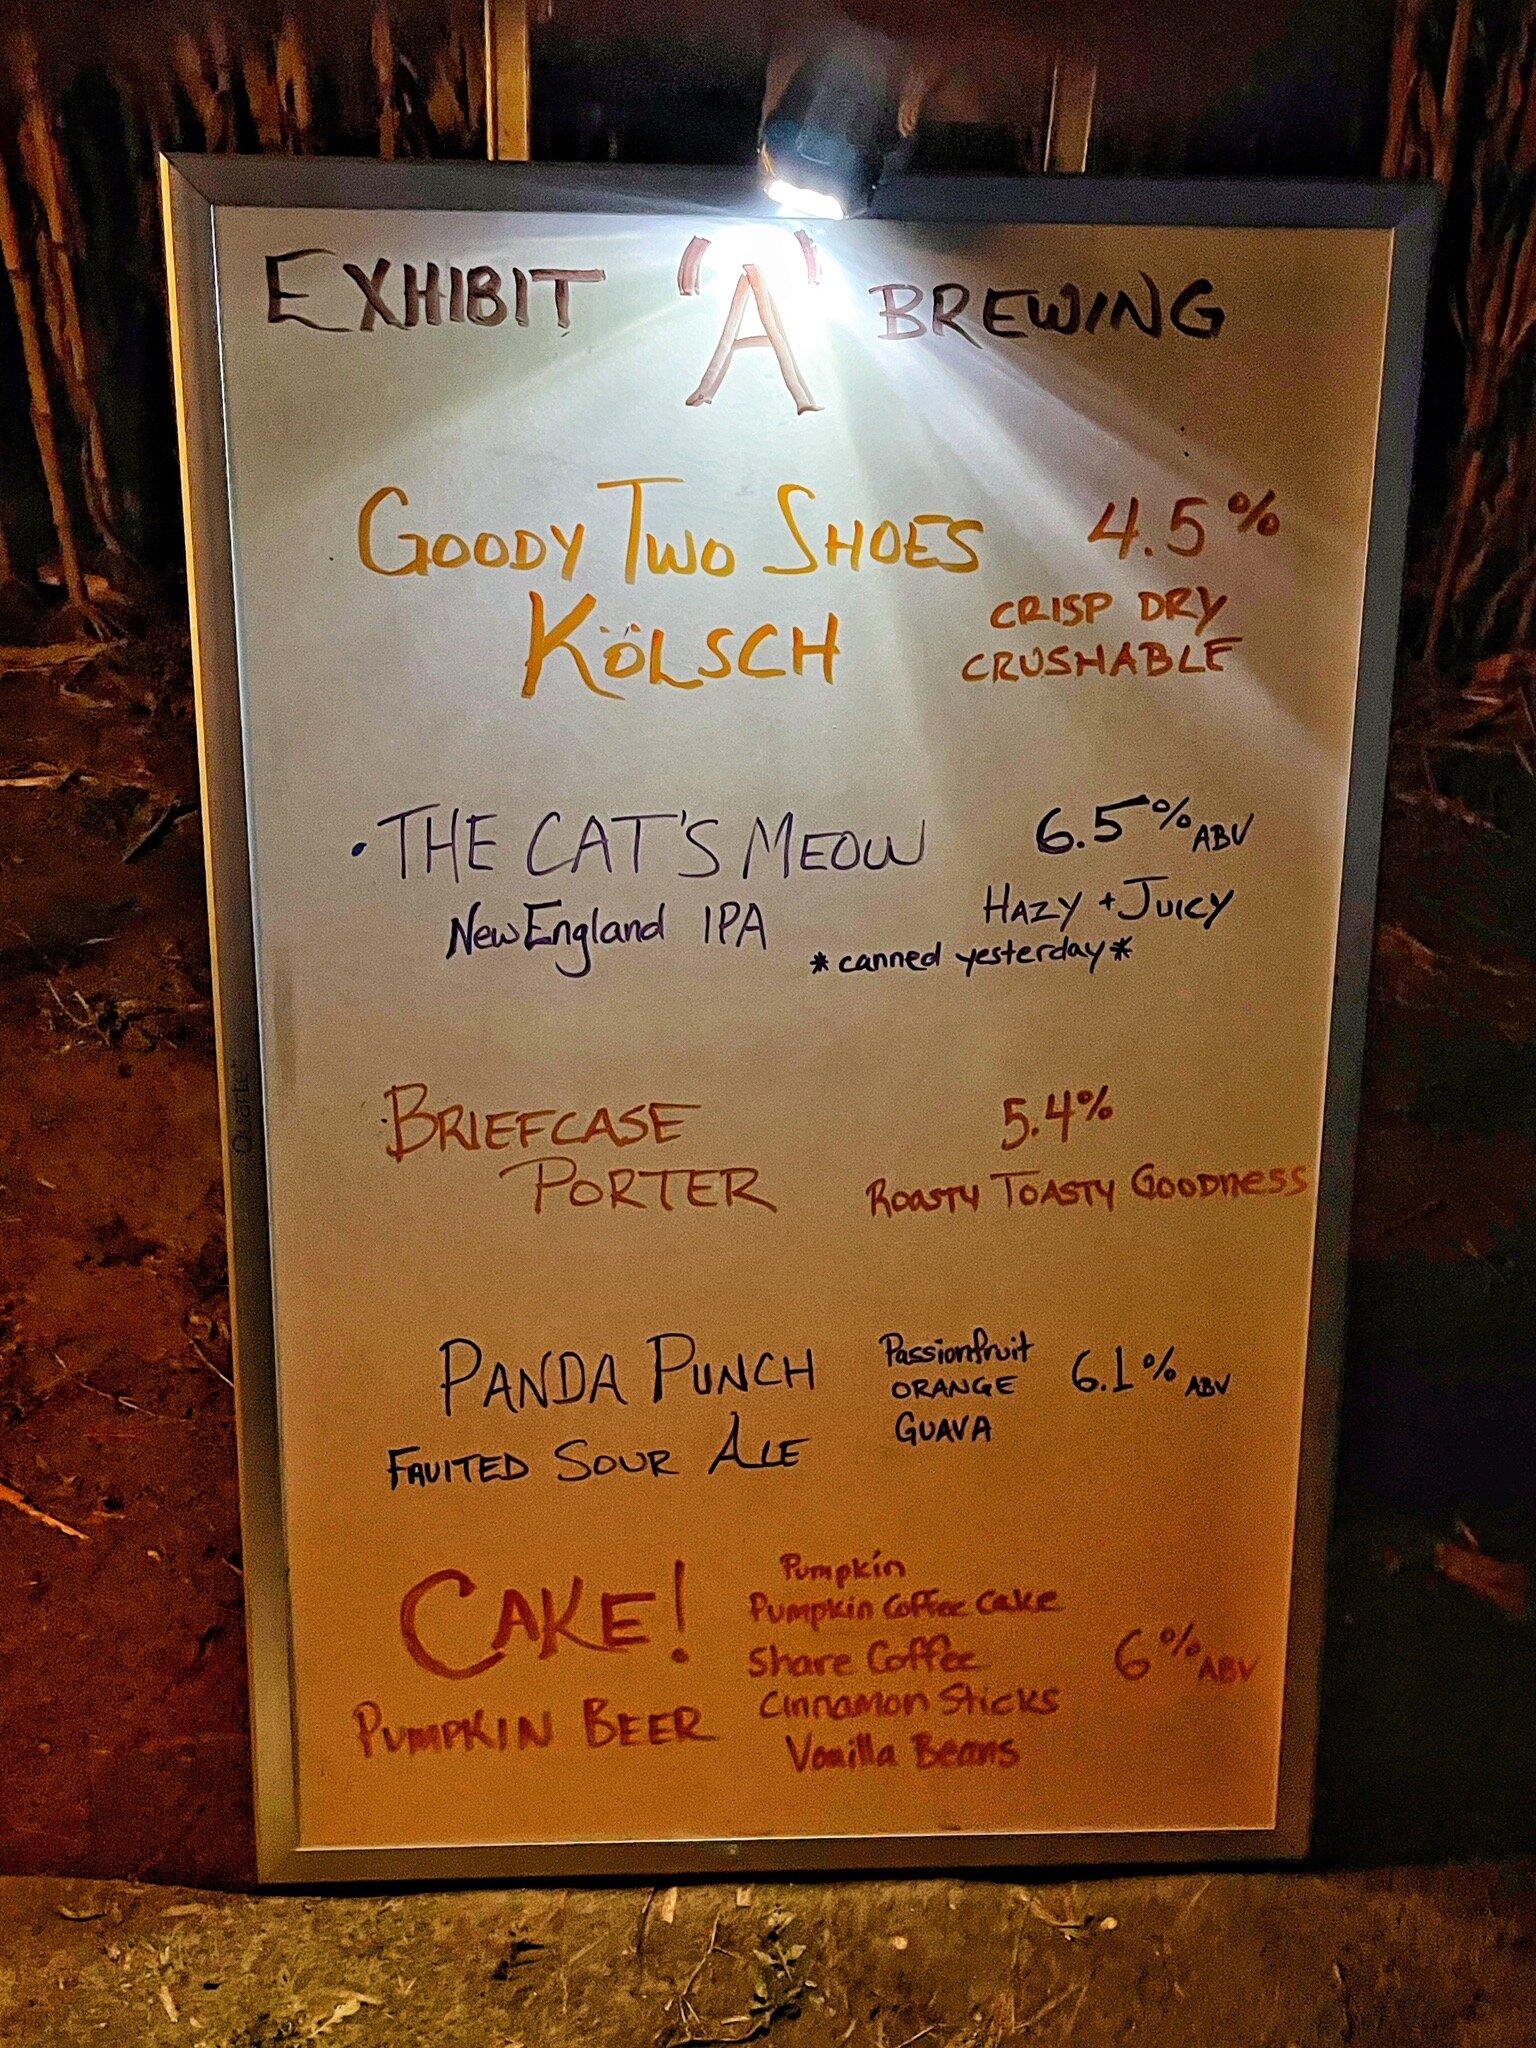 EXHIBIT "A" BREWING
GOODY TWO SHOES 4.5%
KÖLSCH
CRISP DRY
CRUSHABLE
• THE CAT'S MEOW 6.5% ABV
New England IPA
HAZY + JUICY
* canned yesterday *
BRIEFCASE
PORTER
5.4%
ROASTY TOASTY GOODNESS
PANDA PUNCH
FRUITED SOUR ALE
Passionfruit
ORANGE
GUAVA
6.1% ABV
CAKE!
PUMPKIN BEER
Pumpkin
Pumpkin Coffee Cake
Share Coffee
Cinnamon Sticks
Vanilla Beans
6% ABV
Quartet